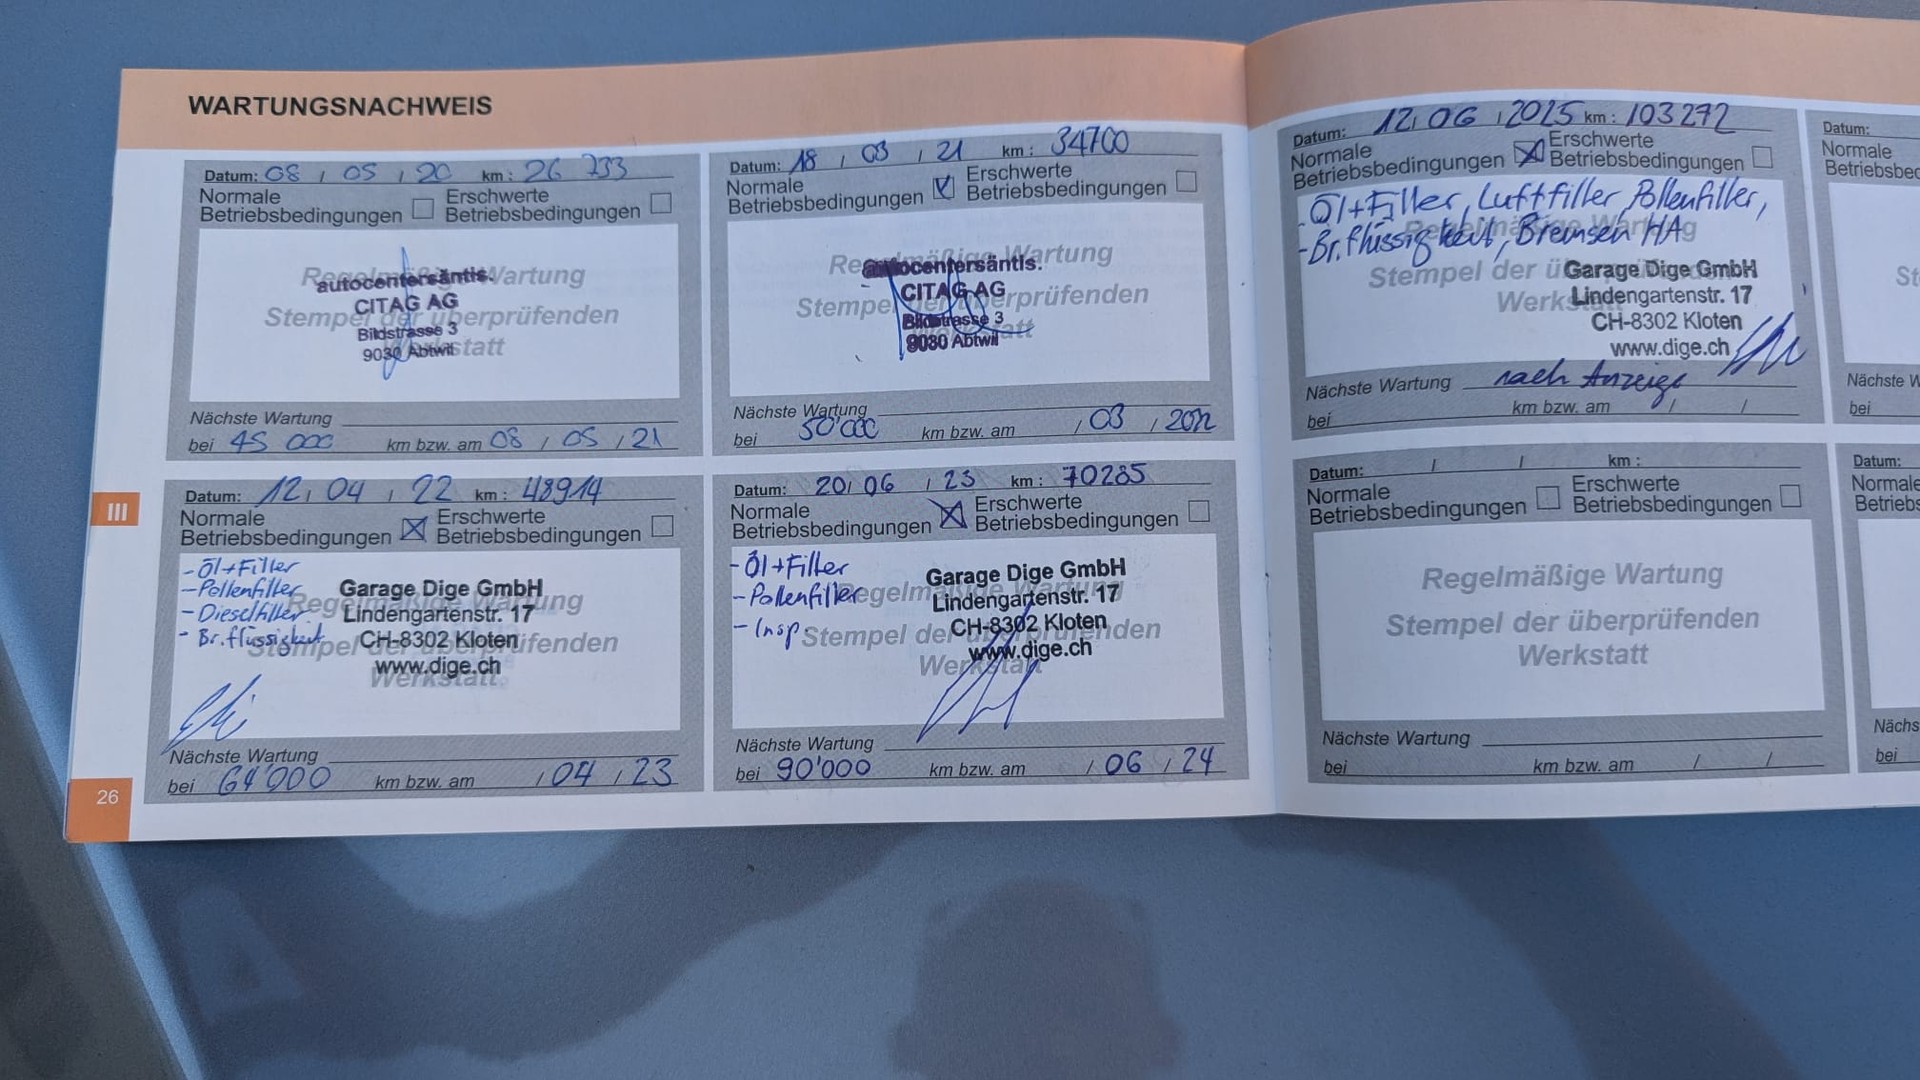 WARTUNGSNACHWEIS
Datum: 08 / 05 / 20 km : 26 733
Normale
Betriebsbedingungen
Erschwerte
Betriebsbedingungen
Regelmäßige Wartung
Stempel der überprüfenden
Werkstatt
autocentersäntis.
CITAG AG
Bildstrasse 3
9030 Abtwil
Nächste Wartung
bei 45 000 km bzw. am 08 / 05 / 21
Datum: 18 / 03 / 21 km : 34700
Normale
Betriebsbedingungen
Erschwerte
Betriebsbedingungen
Regelmäßige Wartung
Stempel der überprüfenden
Werkstatt
autocentersäntis.
CITAG AG
Bildstrasse 3
9030 Abtwil
Nächste Wartung
bei 50'000 km bzw. am / 03 / 2022
III
Datum: 12 / 04 / 22 km : 48914
Normale
Betriebsbedingungen
Erschwerte
Betriebsbedingungen
- Öl+Filter
- Pollenfilter
- Dieselfilter
- Br.flüssigkeit
Regelmäßige Wartung
Stempel der überprüfenden
Werkstatt
Garage Dige GmbH
Lindengartenstr. 17
CH-8302 Kloten
www.dige.ch
Nächste Wartung
bei 64'000 km bzw. am / 04 / 23
Datum: 20 / 06 / 23 km : 70285
Normale
Betriebsbedingungen
Erschwerte
Betriebsbedingungen
- Öl+Filter
- Pollenfilter
- Insp
Regelmäßige Wartung
Stempel der überprüfenden
Werkstatt
Garage Dige GmbH
Lindengartenstr. 17
CH-8302 Kloten
www.dige.ch
Nächste Wartung
bei 90'000 km bzw. am / 06 / 24
26
Datum: 12 / 06 / 2025 km : 103272
Normale
Betriebsbedingungen
Erschwerte
Betriebsbedingungen
- Öl+Filter, Luftfilter, Pollenfilter,
- Br.flüssigkeit, Bremsen HA
Regelmäßige Wartung
Stempel der überprüfenden
Werkstatt
Garage Dige GmbH
Lindengartenstr. 17
CH-8302 Kloten
www.dige.ch
Nächste Wartung nach Anzeige
bei km bzw. am / /
Datum: / / km :
Normale
Betriebsbedingungen
Erschwerte
Betriebsbedingungen
Regelmäßige Wartung
Stempel der überprüfenden
Werkstatt
Nächste Wartung
bei km bzw. am / /
Datum:
Normale
Betriebsbed
St
Nächste W
bei
Datum:
Normale
Betriebs
Nächs
bei